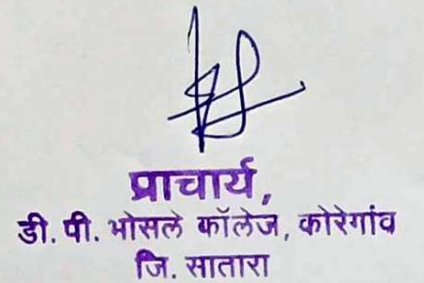 प्राचार्य,
डी. पी. भोसले कॉलेज, कोरेगांव
जि. सातारा